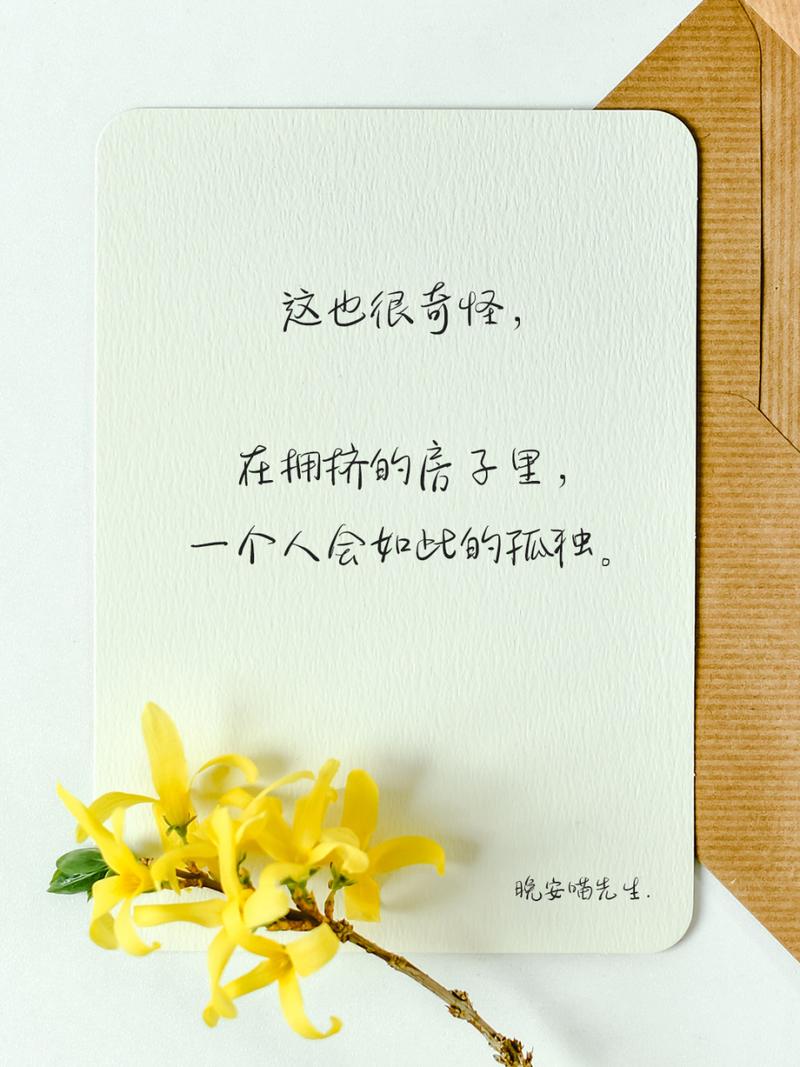 这也很奇怪，
在拥挤的房子里，
一个人会如此的孤独。
晚安喵先生.